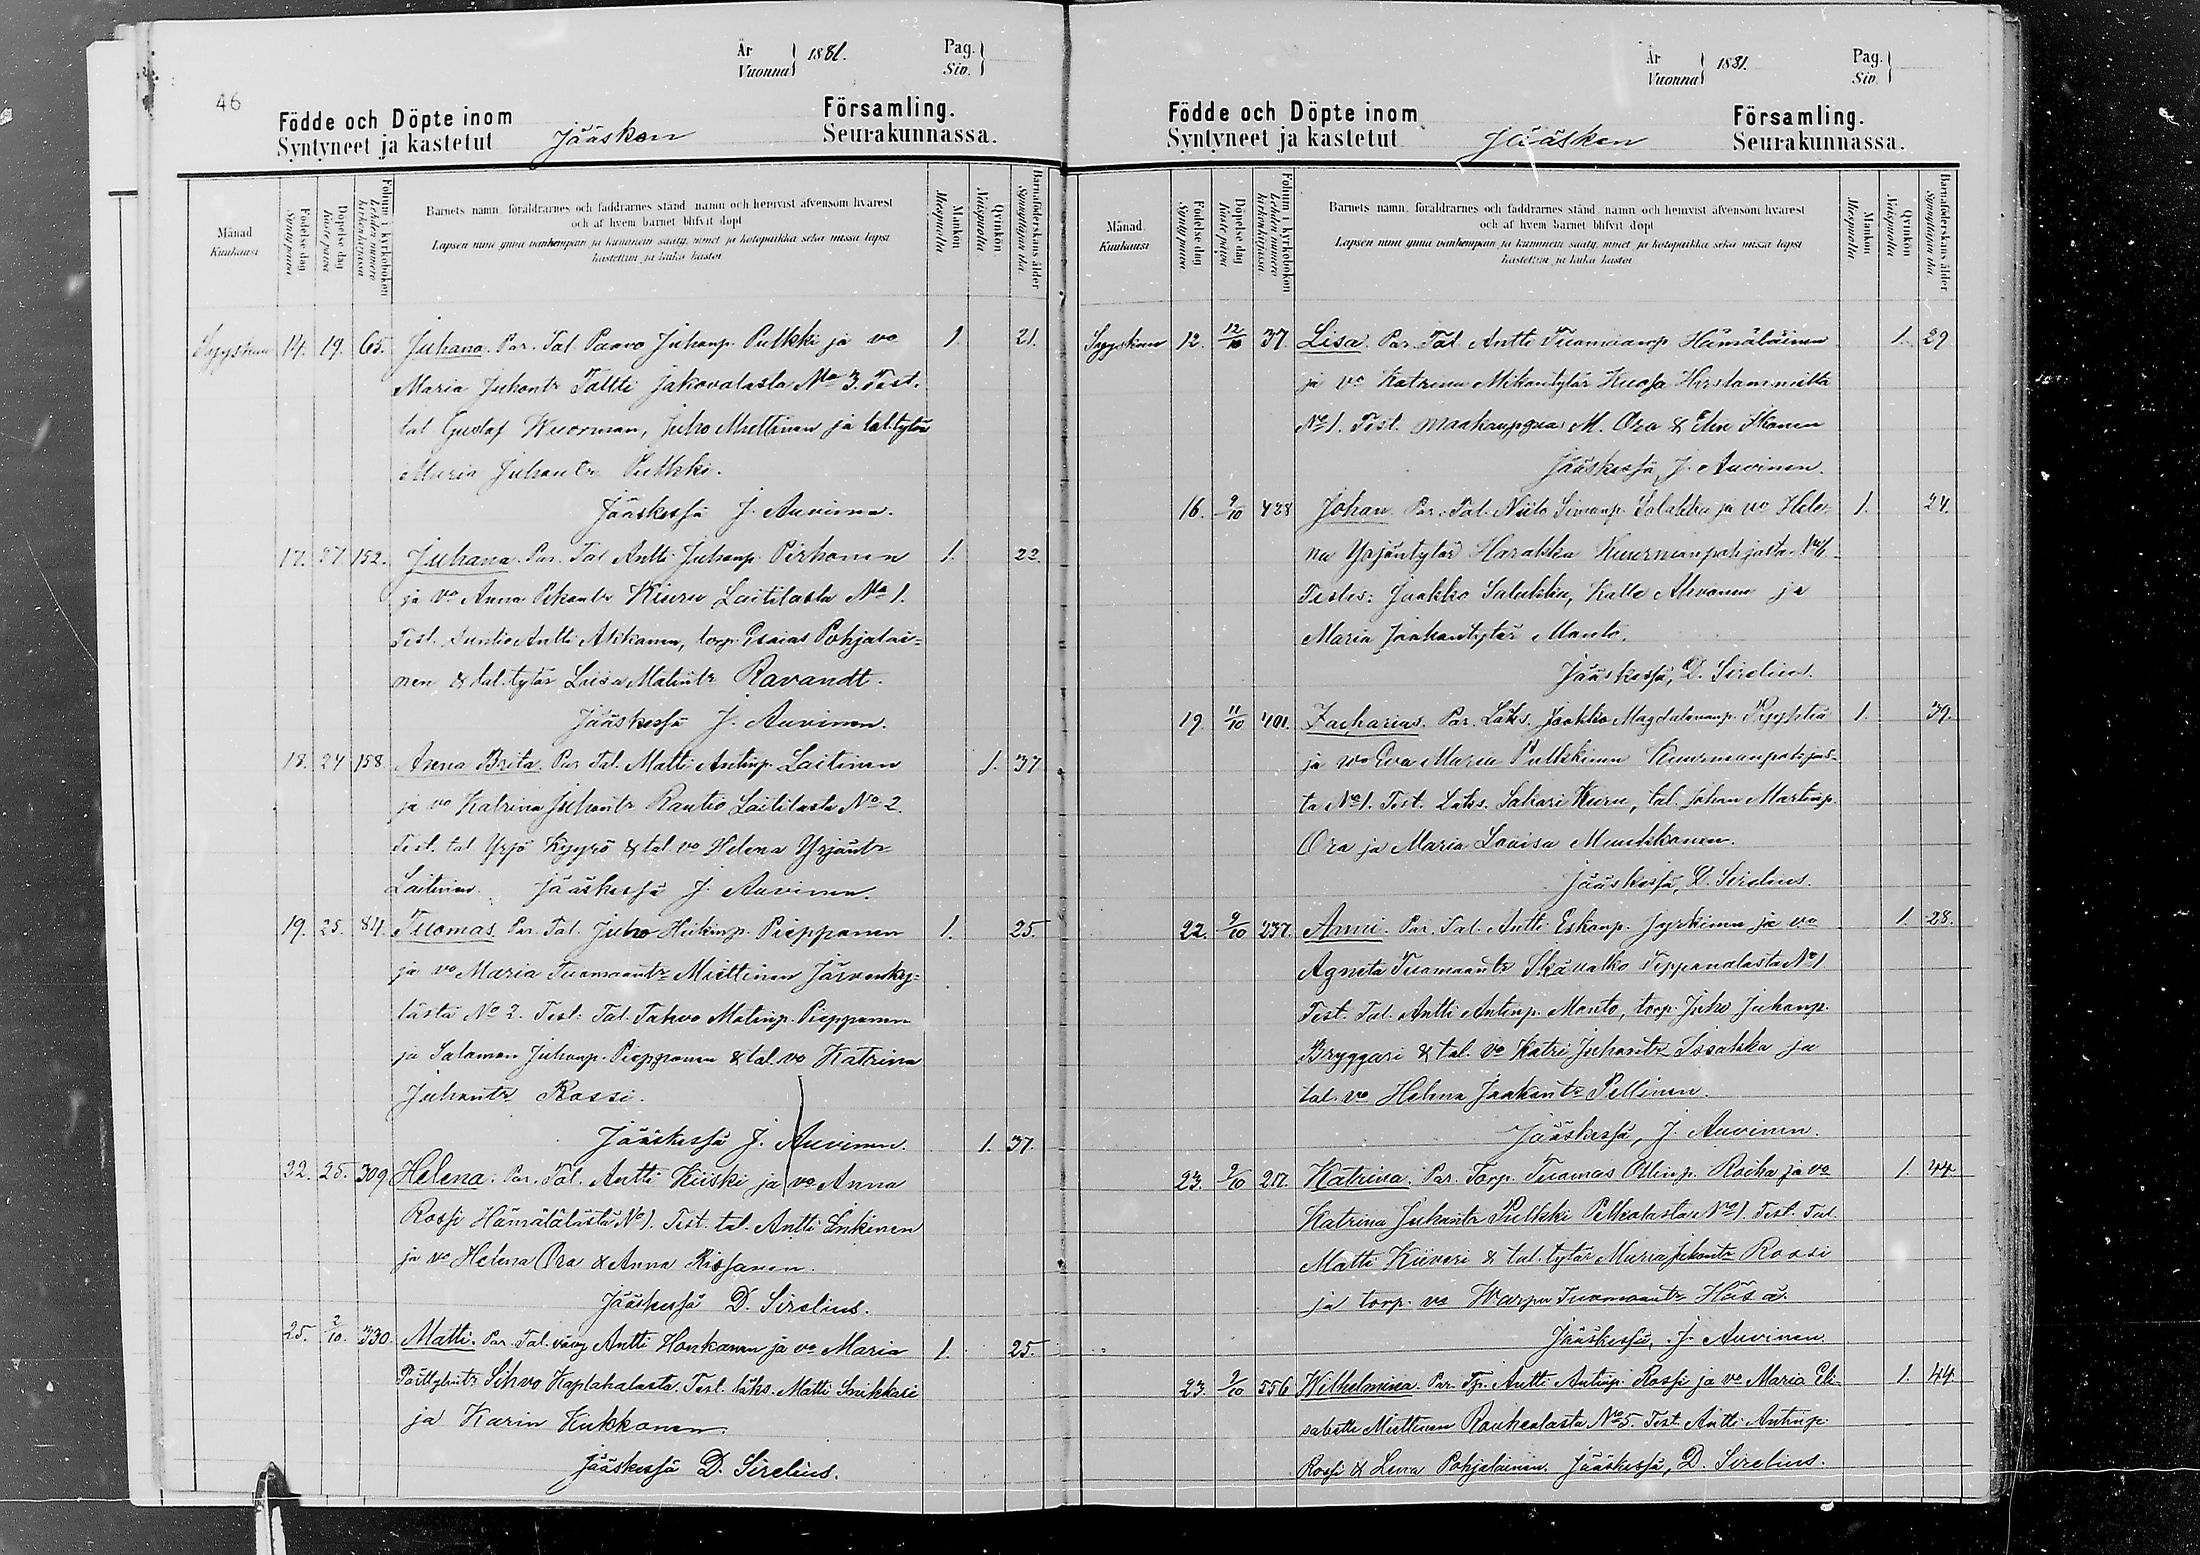 46
År
Vuonna 1881.
Pag.
Siv.
Födde och Döpte inom
Syntyneet ja kastetut
Jääsken
Församling.
Seurakunnassa.
Månad
Kuukausi
Födelse dag
Syntypäivä
Döpelse dag
Kaste päivä
Folium i kyrkoboken
Lehden numero kirkonkirjassa
Barnets namn, föräldrarnes och faddrarnes stånd, namn och hemvist äfvensom hvarest
och af hvem barnet blifvit döpt
Lapsen nimi ynnä vanhempain ja kummein sääty, nimet ja kotopaikka sekä missä lapsi
kastettiin ja kuka kastoi
Mankön
Miespuolta
Qvinkön
Naispuolta
Barnaföderskans ålder
Synnyttäjän ikä
Syyskuu 14. 19. 65. Juhana. Par. Tal. Paavo Juhanp. Pulkki ja vo 1. 21.
Maria Juhantr Taltti Jakovalasta No 3. Test.
tal Gustaf Wuorman, Juho Miettinen ja tal.tytär
Maria Juhantr Pulkki.
Jääskessä J. Auvinen.
17. 27 152. Juhana. Par. Tal Antti Juhanp. Pirhonen 1. 22.
ja vo Anna Kiuru Laitilasta No 1.
Test. Antti torp. Esaias Pohjalai-
nen & tal.tytär Liisa Matintr Ravandt.
Jääskessä J. Auvinen.
18. 24 158 Anna Brita. Par Tal. Matti Antinp. Laitinen 1. 37
ja vo Katrina Juhantr Rautio Laitilasta No 2.
Test. tal Yrjö Kyyrö & tal. vo Helena Yrjöntr
Laitinen. Jääskessä J. Auvinen.
19. 25. 84. Tuomas. Par. Tal. Juho Heikinp. Piepponen 1. 25.
ja vo Maria Tuomaantr Miettinen Järvenky-
lästä No 2. Test. Tal. Tahvo Matinp. Piepponen
ja Salamon Juhanp. Piepponen & tal. vo Katrina
Juhantr Rossi.
Jääskessä J. Auvinen.
22. 25. 309 Helena. Par. Tal. Antti Kiiski ja vo Anna 1. 37.
Rossi Hämälälästä No 1. Test. tal. Antti Inkinen
ja vo Helena Ora & Anna Rissanen.
Jääskessä D. Sirelius.
25. 2/10. 330. Matti. Par. Tal. vävy Antti Honkanen ja vo Maria 1. 25.
Sihvo Kaplahalasta. Test. läks. Matti Snikkari
ja Karin Kukkonen.
Jääskessä D. Sirelius.
År
Vuonna 1881.
Pag.
Siv.
Födde och Döpte inom
Syntyneet ja kastetut
Jääsken
Församling.
Seurakunnassa.
Månad
Kuukausi
Födelse dag
Syntypäivä
Döpelse dag
Kaste päivä
Folium i kyrkoboken
Lehden numero kirkonkirjassa
Barnets namn, föräldrarnes och faddrarnes stånd, namn och hemvist äfvensom hvarest
och af hvem barnet blifvit döpt
Lapsen nimi ynnä vanhempain ja kummein sääty, nimet ja kotopaikka sekä missä lapsi
kastettiin ja kuka kastoi
Mankön
Miespuolta
Qvinkön
Naispuolta
Barnaföderskans ålder
Synnyttäjän ikä
Syyskuu 12. 12/10 37. Lisa. Par. Tal. Antti Tuomaanp Hämäläinen 1. 29
ja vo Katrina Mikontytär Kuosa
No 1. Test. maakauppias M. Ora & Elin Ikonen
Jääskessä, J. Auvinen.
16. 9/10 428 Johan. Par. Tal. Niilo Simonp. Salakka ja vo Hele- 1. 24.
na Yrjöntytär Harakka Kuurmanpohjasta No 1.
Testes: Jaakko Salakka, Kalle Ahvonen ja
Maria Jaakontytär Monto.
Jääskessä, D. Sirelius.
19. 11/10 401. Zacharias. Par. Läks. Jaakko Magdalenanp. Ryyhtiä 1. 39.
ja vo Eva Maria Pulkkinen Kuurmanpohjas-
ta No 1. Test. Läks. Sakari Kuru, tal. Johan Martinp.
Ora ja Maria Lovisa Muukkonen.
Jääskessä, D. Sirelius.
22. 9/10 237. Anni. Par. Tal. Antti Eskonp. Jyrkinen ja vo 1. 28.
Agneta Tuomaantr Skävalko Teppanalasta No 1
Test. Tal. Antti Antinp. Monto, torp. Juho Juhanp.
Bryggari & tal. vo Katri Juhantr Issakka ja
tal. vo Helena Jaakontr Pellinen.
Jääskessä, J. Auvinen.
23. 9/10 217. Katrina. Par. Torp. Tuomas Ollinp. Roiha ja vo 1. 44.
Katrina Juhantr Pulkki Pelkolasta No 1. Test. Tal.
Matti Kiiveri & tal. tytär Maria Juhontr Rossi
ja torp. vo Warpu Tuomaantr Häsä.
Jääskessä, J. Auvinen.
23. 9/10 556 Wilhelmina. Par. Tp. Antti Antinp. Rossi ja vo Maria Eli- 1. 44.
sabetta Miettinen Rouhialasta No 5. Test. Antti Antinp.
Rossi & Lena Pohjalainen. Jääskessä, D. Sirelius.